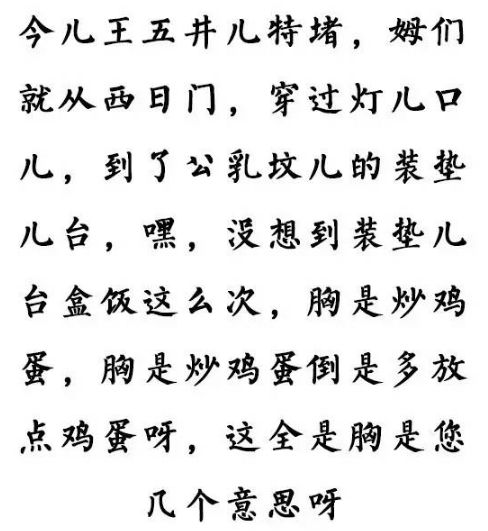 今儿王五井儿特堵，姆们
就从西日门，穿过灯儿口
儿，到了公乳坟儿的装垫
儿台，嘿，没想到装垫儿
台盒饭这么次，胸是炒鸡
蛋，胸是炒鸡蛋倒是多放
点鸡蛋呀，这全是胸是您
几个意思呀